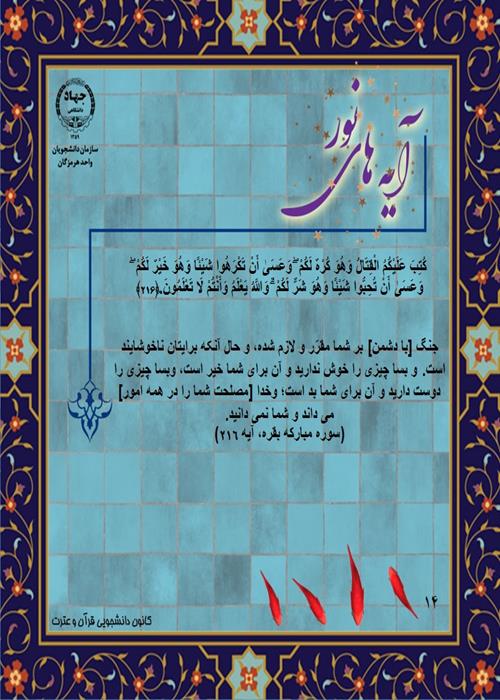 جهاد
دانشگاهی
۱۳۵۹
سازمان دانشجویان
واحد هرمزگان
آیه های نور
كُتِبَ عَلَيْكُمُ الْقِتَالُ وَهُوَ كُرْهٌ لَكُمْ ۖ وَعَسَىٰ أَنْ تَكْرَهُوا شَيْئًا وَهُوَ خَيْرٌ لَكُمْ ۖ
وَعَسَىٰ أَنْ تُحِبُّوا شَيْئًا وَهُوَ شَرٌّ لَكُمْ ۗ وَاللَّهُ يَعْلَمُ وَأَنْتُمْ لَا تَعْلَمُونَ.﴿۲۱۶﴾
جنگ [با دشمن] بر شما مقرّر و لازم شده، و حال آنکه برایتان ناخوشایند
است. و بسا چیزی را خوش ندارید و آن برای شما خیر است، وبسا چیزی را
دوست دارید و آن برای شما بد است؛ وخدا [مصلحت شما را در همه امور]
می داند و شما نمی دانید.
(سوره مبارکه بقره، آیه ۲۱۶)
۱۴
کانون دانشجویی قرآن و عترت